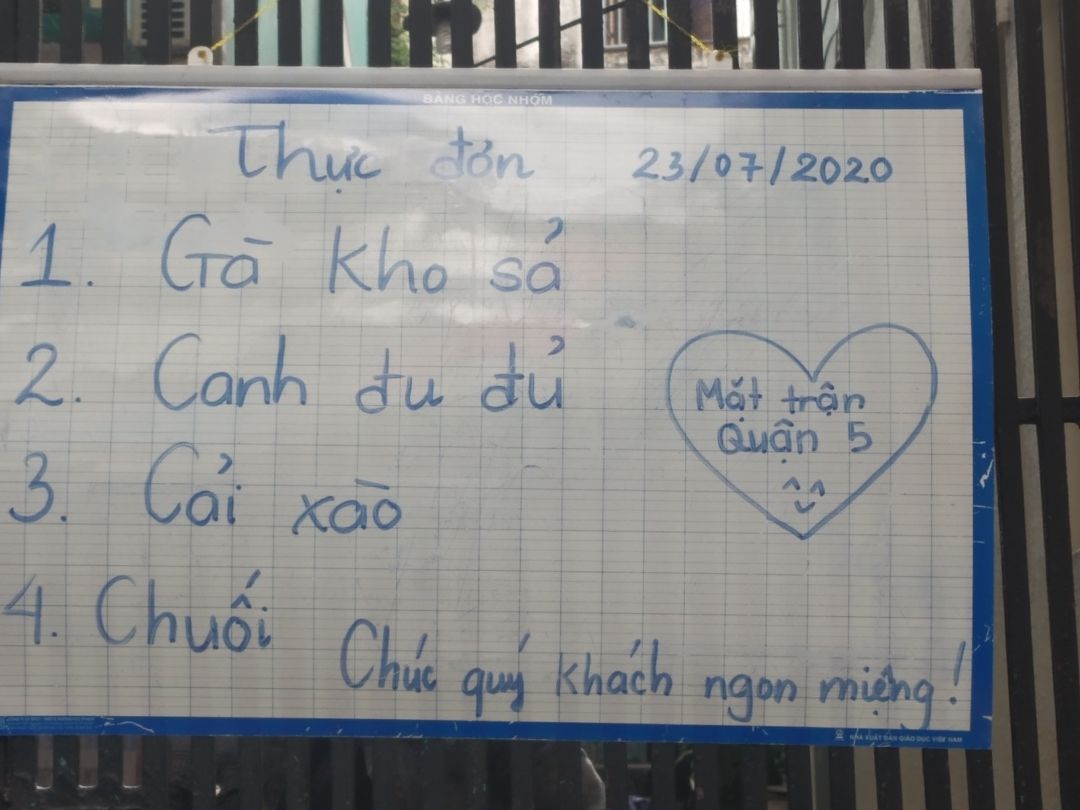 BẢNG HỌC NHÓM
Thực đơn 23/07/2020
1. Gà kho sả
2. Canh đu đủ
3. Cải xào
4. Chuối
Mặt trận
Quận 5
Chúc quý khách ngon miệng!
NHÀ XUẤT BẢN GIÁO DỤC VIỆT NAM